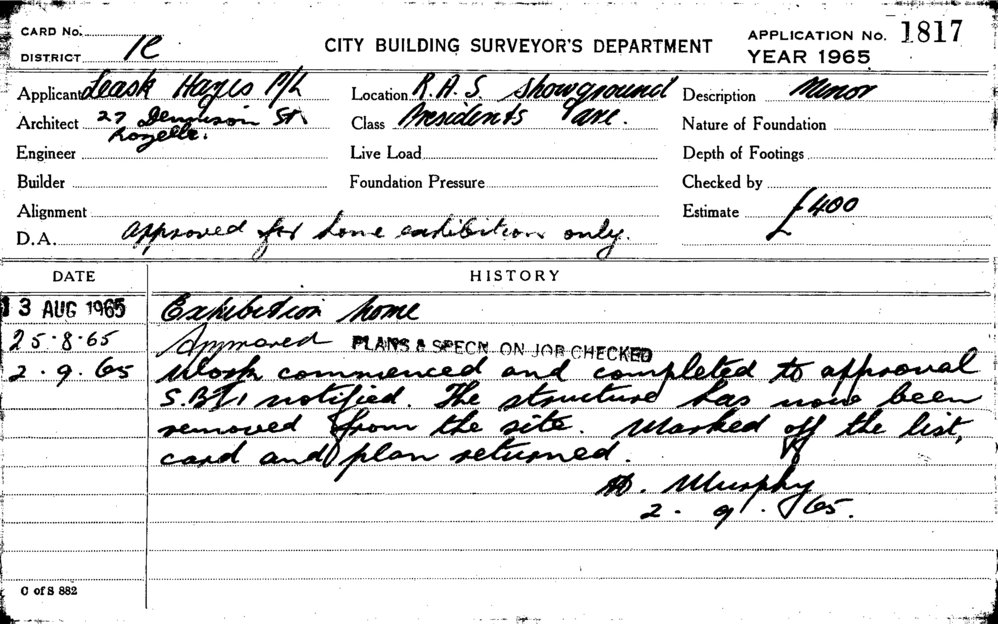 CARD No.
DISTRICT 1C
CITY BUILDING SURVEYOR'S DEPARTMENT
APPLICATION No. 1817
YEAR 1965
Applicant Leask Hayes P/L
Location R.A.S. Showground
Description Minor
Architect 27 Dennison St,
Rozelle.
Class Presidents Ave.
Nature of Foundation
Engineer
Live Load
Depth of Footings
Builder
Foundation Pressure
Checked by
Alignment
Estimate £400
D.A. approved for home exhibition only.
DATE HISTORY
13 AUG 1965 Exhibition home
25.8.65 Approved PLANS & SPECN. ON JOB CHECKED
2.9.65 Work commenced and completed to approval
notified. The structure has now been
removed from the site. Marked off the list,
card and plan returned.
Murphy
2.9.65.
C of S 882